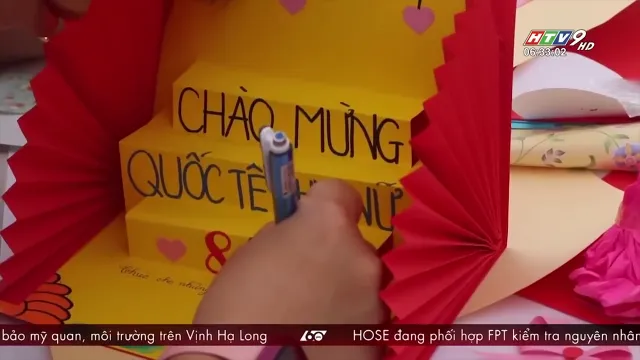 HTV9 HD
06:33:02
CHÀO MỪNG
QUỐC TẾ NỮ
8
Chúc
bảo mỹ quan, môi trường trên Vịnh Hạ Long
60
HOSE đang phối hợp FPT kiểm tra nguyên nhân